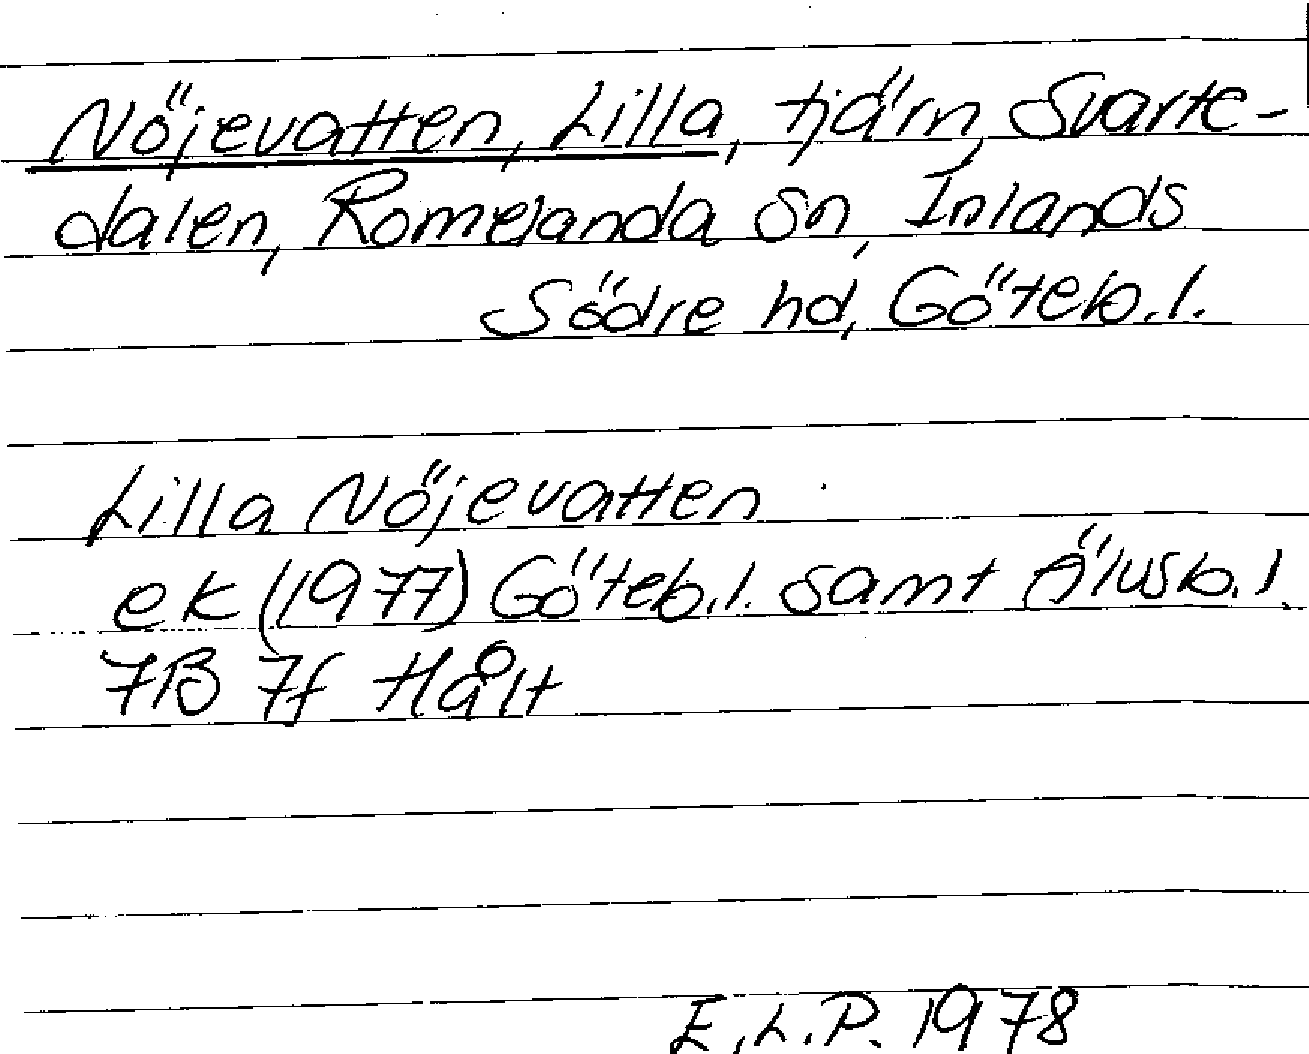 Nöjevatten, Lilla, tjärn, Svarte-
dalen, Romelanda sn, Inlands
Södre hd, Göteb.l.
Lilla Nöjevatten
ek (1977) Göteb.l. samt Älvsb.l
7B 7f Hålt
E.L.P. 1978